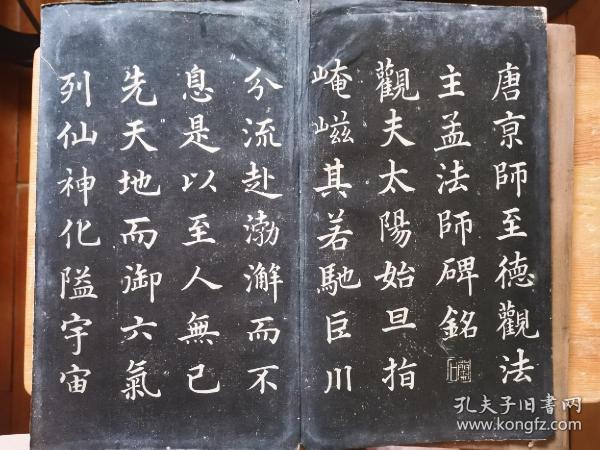 唐京師至德觀法
主孟法師碑銘
觀夫太陽始旦指
崦嵫其若馳巨川
分流赴渤澥而不
息是以至人無己
先天地而御六氣
列仙神化隘宇宙
孔夫子旧书网
www.kongfz.com